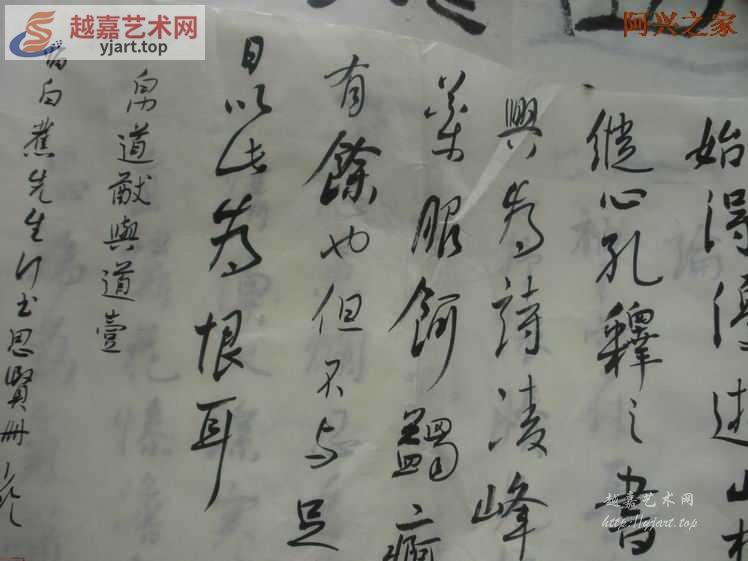 越嘉艺术网
yjart.top
阿兴之家
始得優遊山林
縱心孔釋之書
興為詩凌峰
藥服餌蠲痾
有餘也但不与足
日以此為恨耳
帛道猷與道壹
白蕉先生行书思賢冊
越嘉艺术网
http://yjart.top